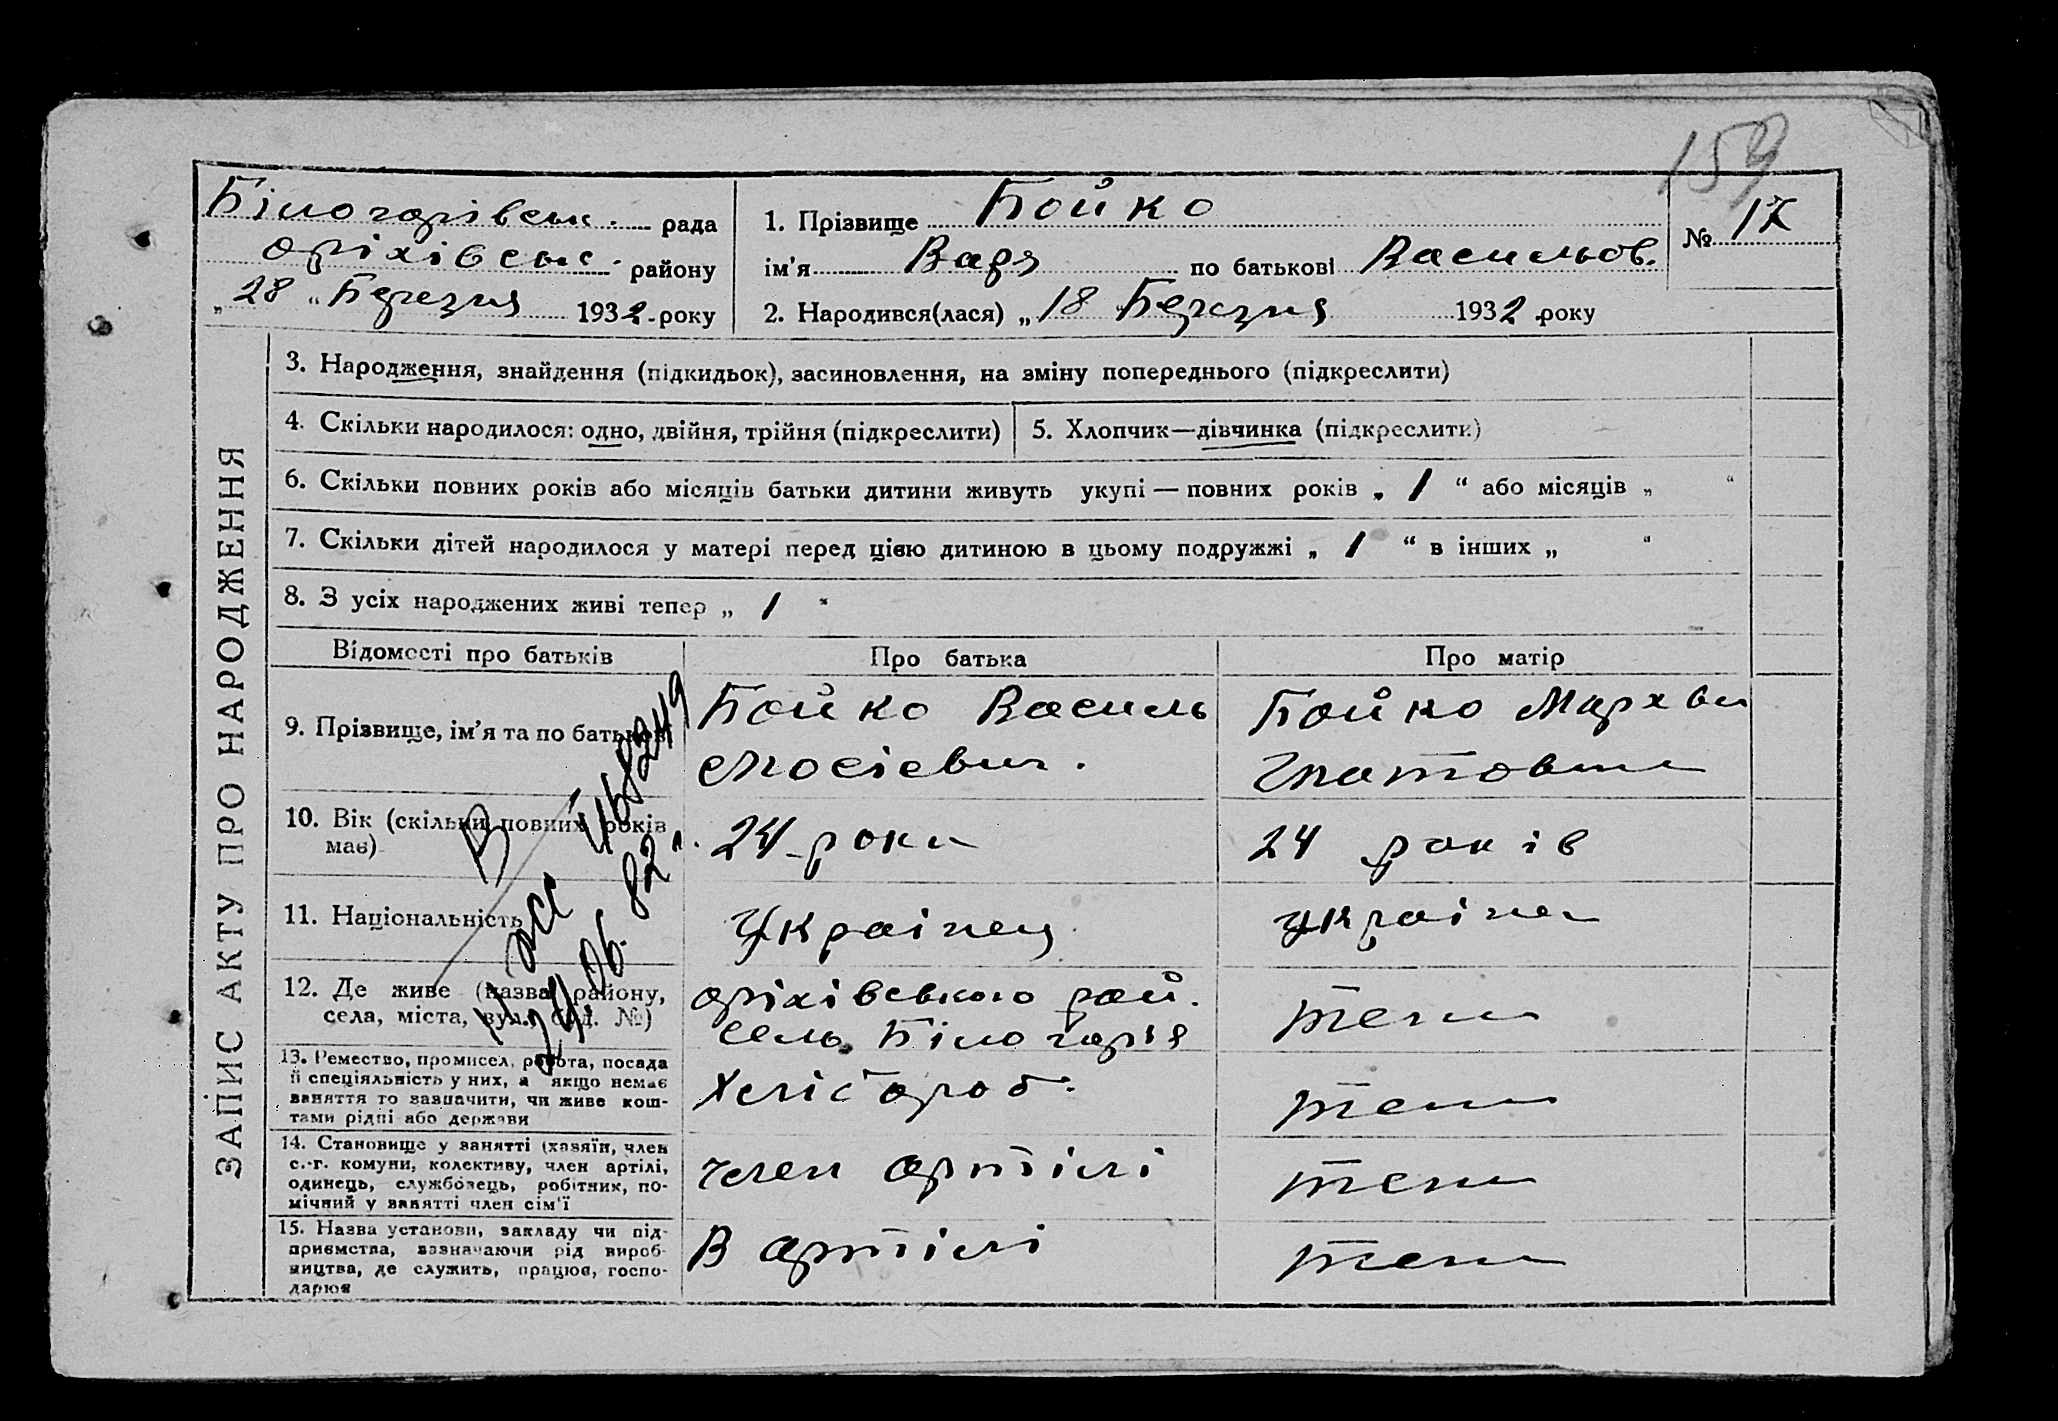 159
Білогорівськ. рада
Оріхівськ. району
„28“ Березня 1932 року
1. Прізвище Бойко
ім’я Варя по батькові Васильов.
№ 17
2. Народився(лася) „18 Березня 1932 року
ЗАПИС АКТУ ПРО НАРОДЖЕННЯ
3. Народження, знайдення (підкидьок), засиновлення, на зміну попереднього (підкреслити)
4. Скільки народилося: одно, двійня, трійня (підкреслити)
5. Хлопчик—дівчинка (підкреслити)
6. Скільки повних років або місяців батьки дитини живуть укупі — повних років „ 1 “ або місяців „ “
7. Скільки дітей народилося у матері перед цією дитиною в цьому подружжі „ 1 “ в інших „ “
8. З усіх народжених живі тепер „ 1 “
Відомості про батьків
Про батька
Про матір
9. Прізвище, ім’я та по батькові
Бойко Василь
Мосієвич.
Бойко Мархва
Гнатовна
10. Вік (скільки повних років
має)
24 роки
24 років
11. Національність
Українец
україн
12. Де живе (назва району,
села, міста, вул., буд. №)
Оріхівського рай.
село Білогорія
теж
13. Ремество, промисел, робота, посада
й спеціяльність у них, а якщо немає
заняття то зазначити, чи живе кош-
тами рідні або держави
Хлібороб.
теж
14. Становище у занятті (хазяїн, член
с.-г. комуни, колективу, член артілі,
одинець, службовець, робітник, по-
мічний у занятті член сім’ї
член артілі
теж
15. Назва установи, закладу чи під-
приємства, зазначаючи рід вироб-
ництва, де служить, працює, госпо-
дарює
В артілі
теж
29.06.82 г.